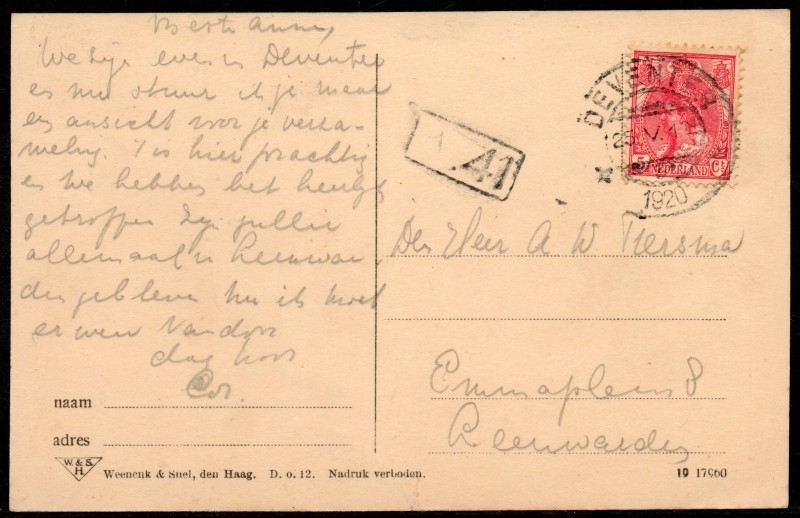 Beste Anne,
We zijn even in Deventer
en nu stuur ik je maar
een ansicht voor je verza-
meling. 't is hier prachtig
en we hebben het heerlijk
getroffen. Zijn jullie
allemaal in Leeuwar
den gebleven. Nu ik moet
er weer vandoor
dag hoor
Cor.
naam
adres
W. & S.
H
Weenenk & Snel, den Haag. D. o. 12. Nadruk verboden.
19 17960
41
DEVENTER
1920
5 Ct
NEDERLAND
Den Heer A W Tiersma
Emmaplein 8
Leeuwarden